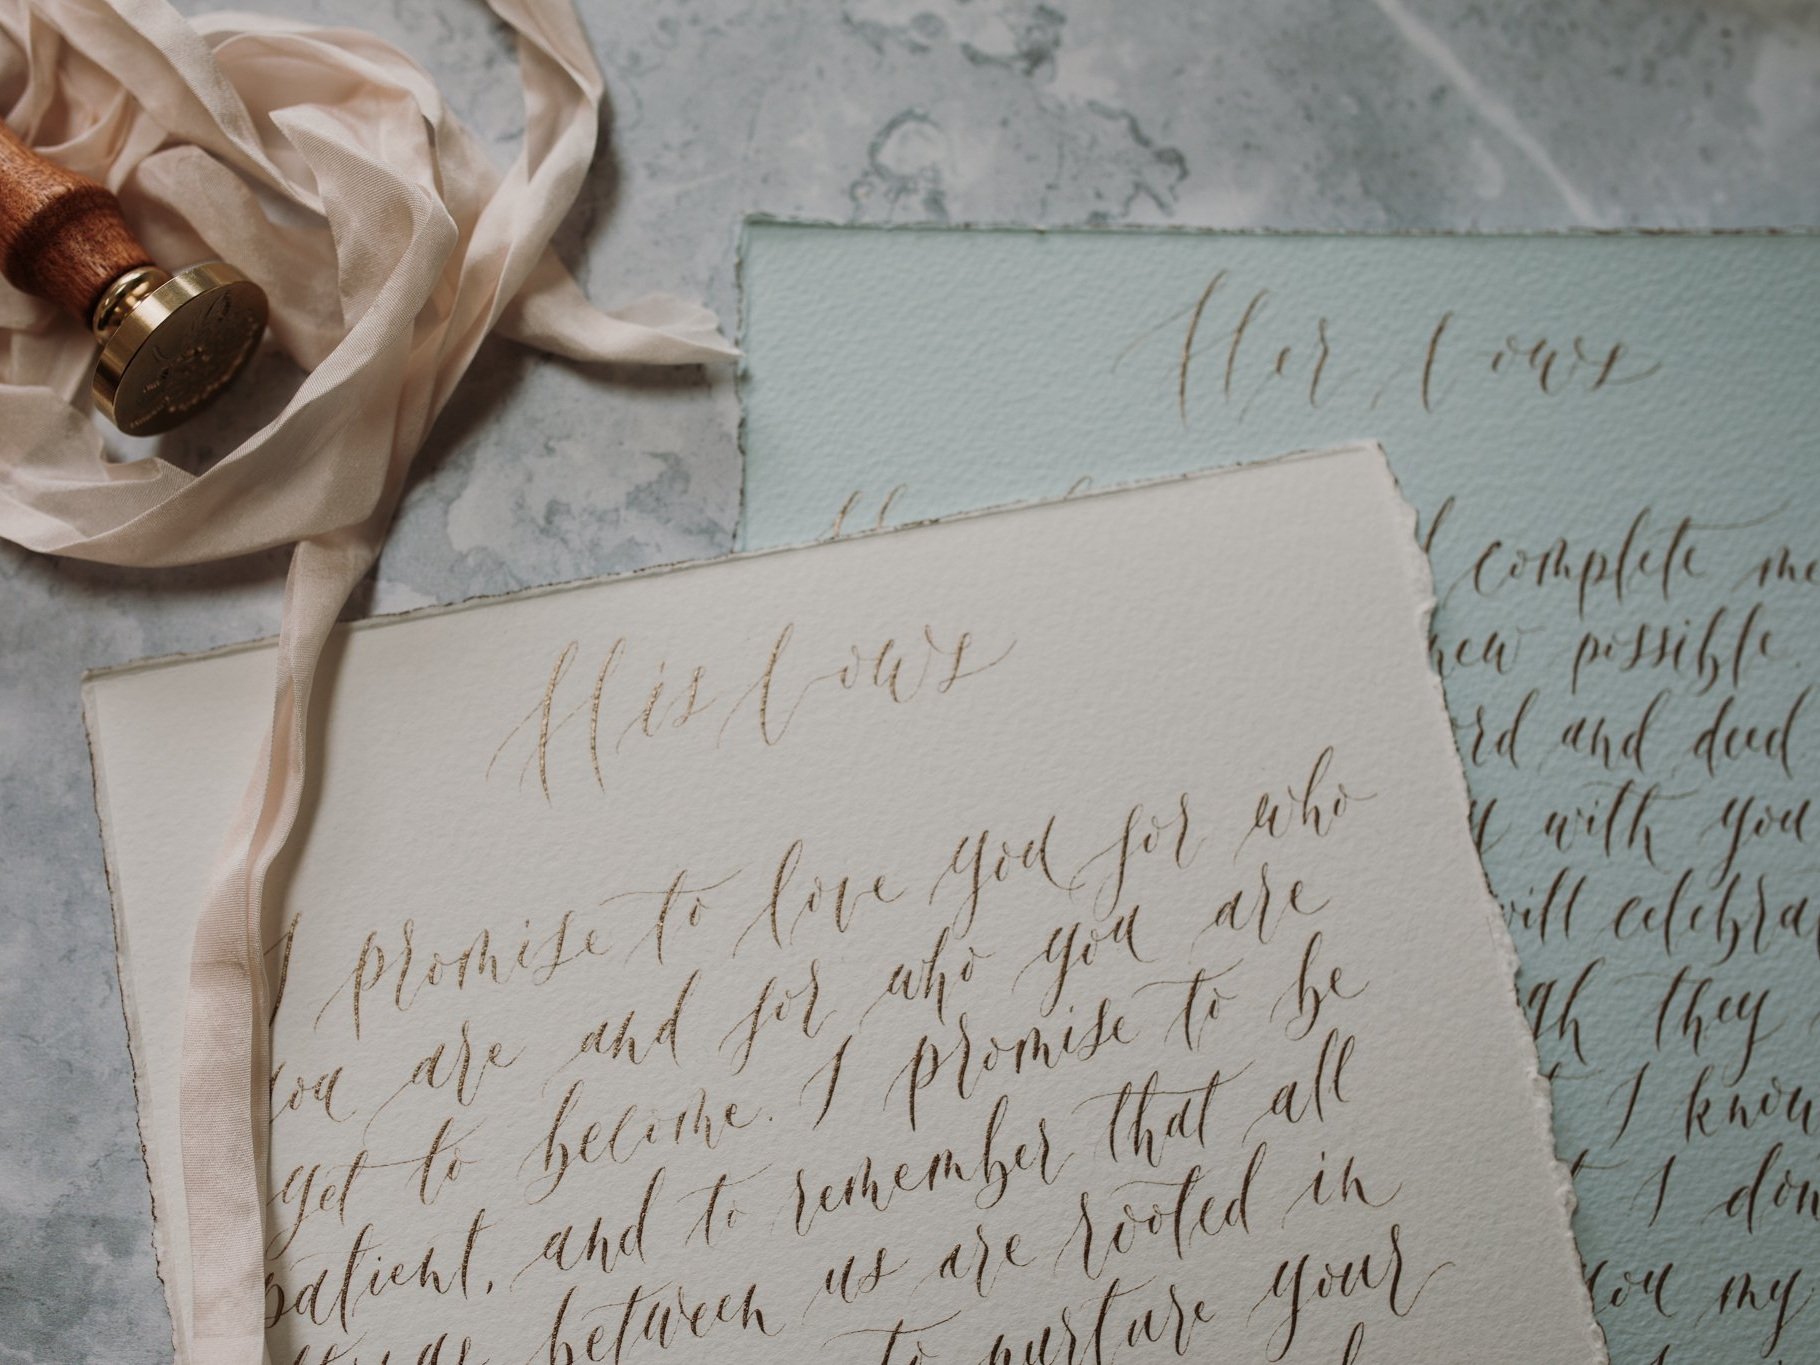 Her Vows
complete me
new possible.
and deed
with you
will celebra
they
I know
I don
you my
His Vows
I promise to love you for who
you are and for who you are
yet to become. I promise to be
patient, and to remember that all
between us are rooted in
to nurture your